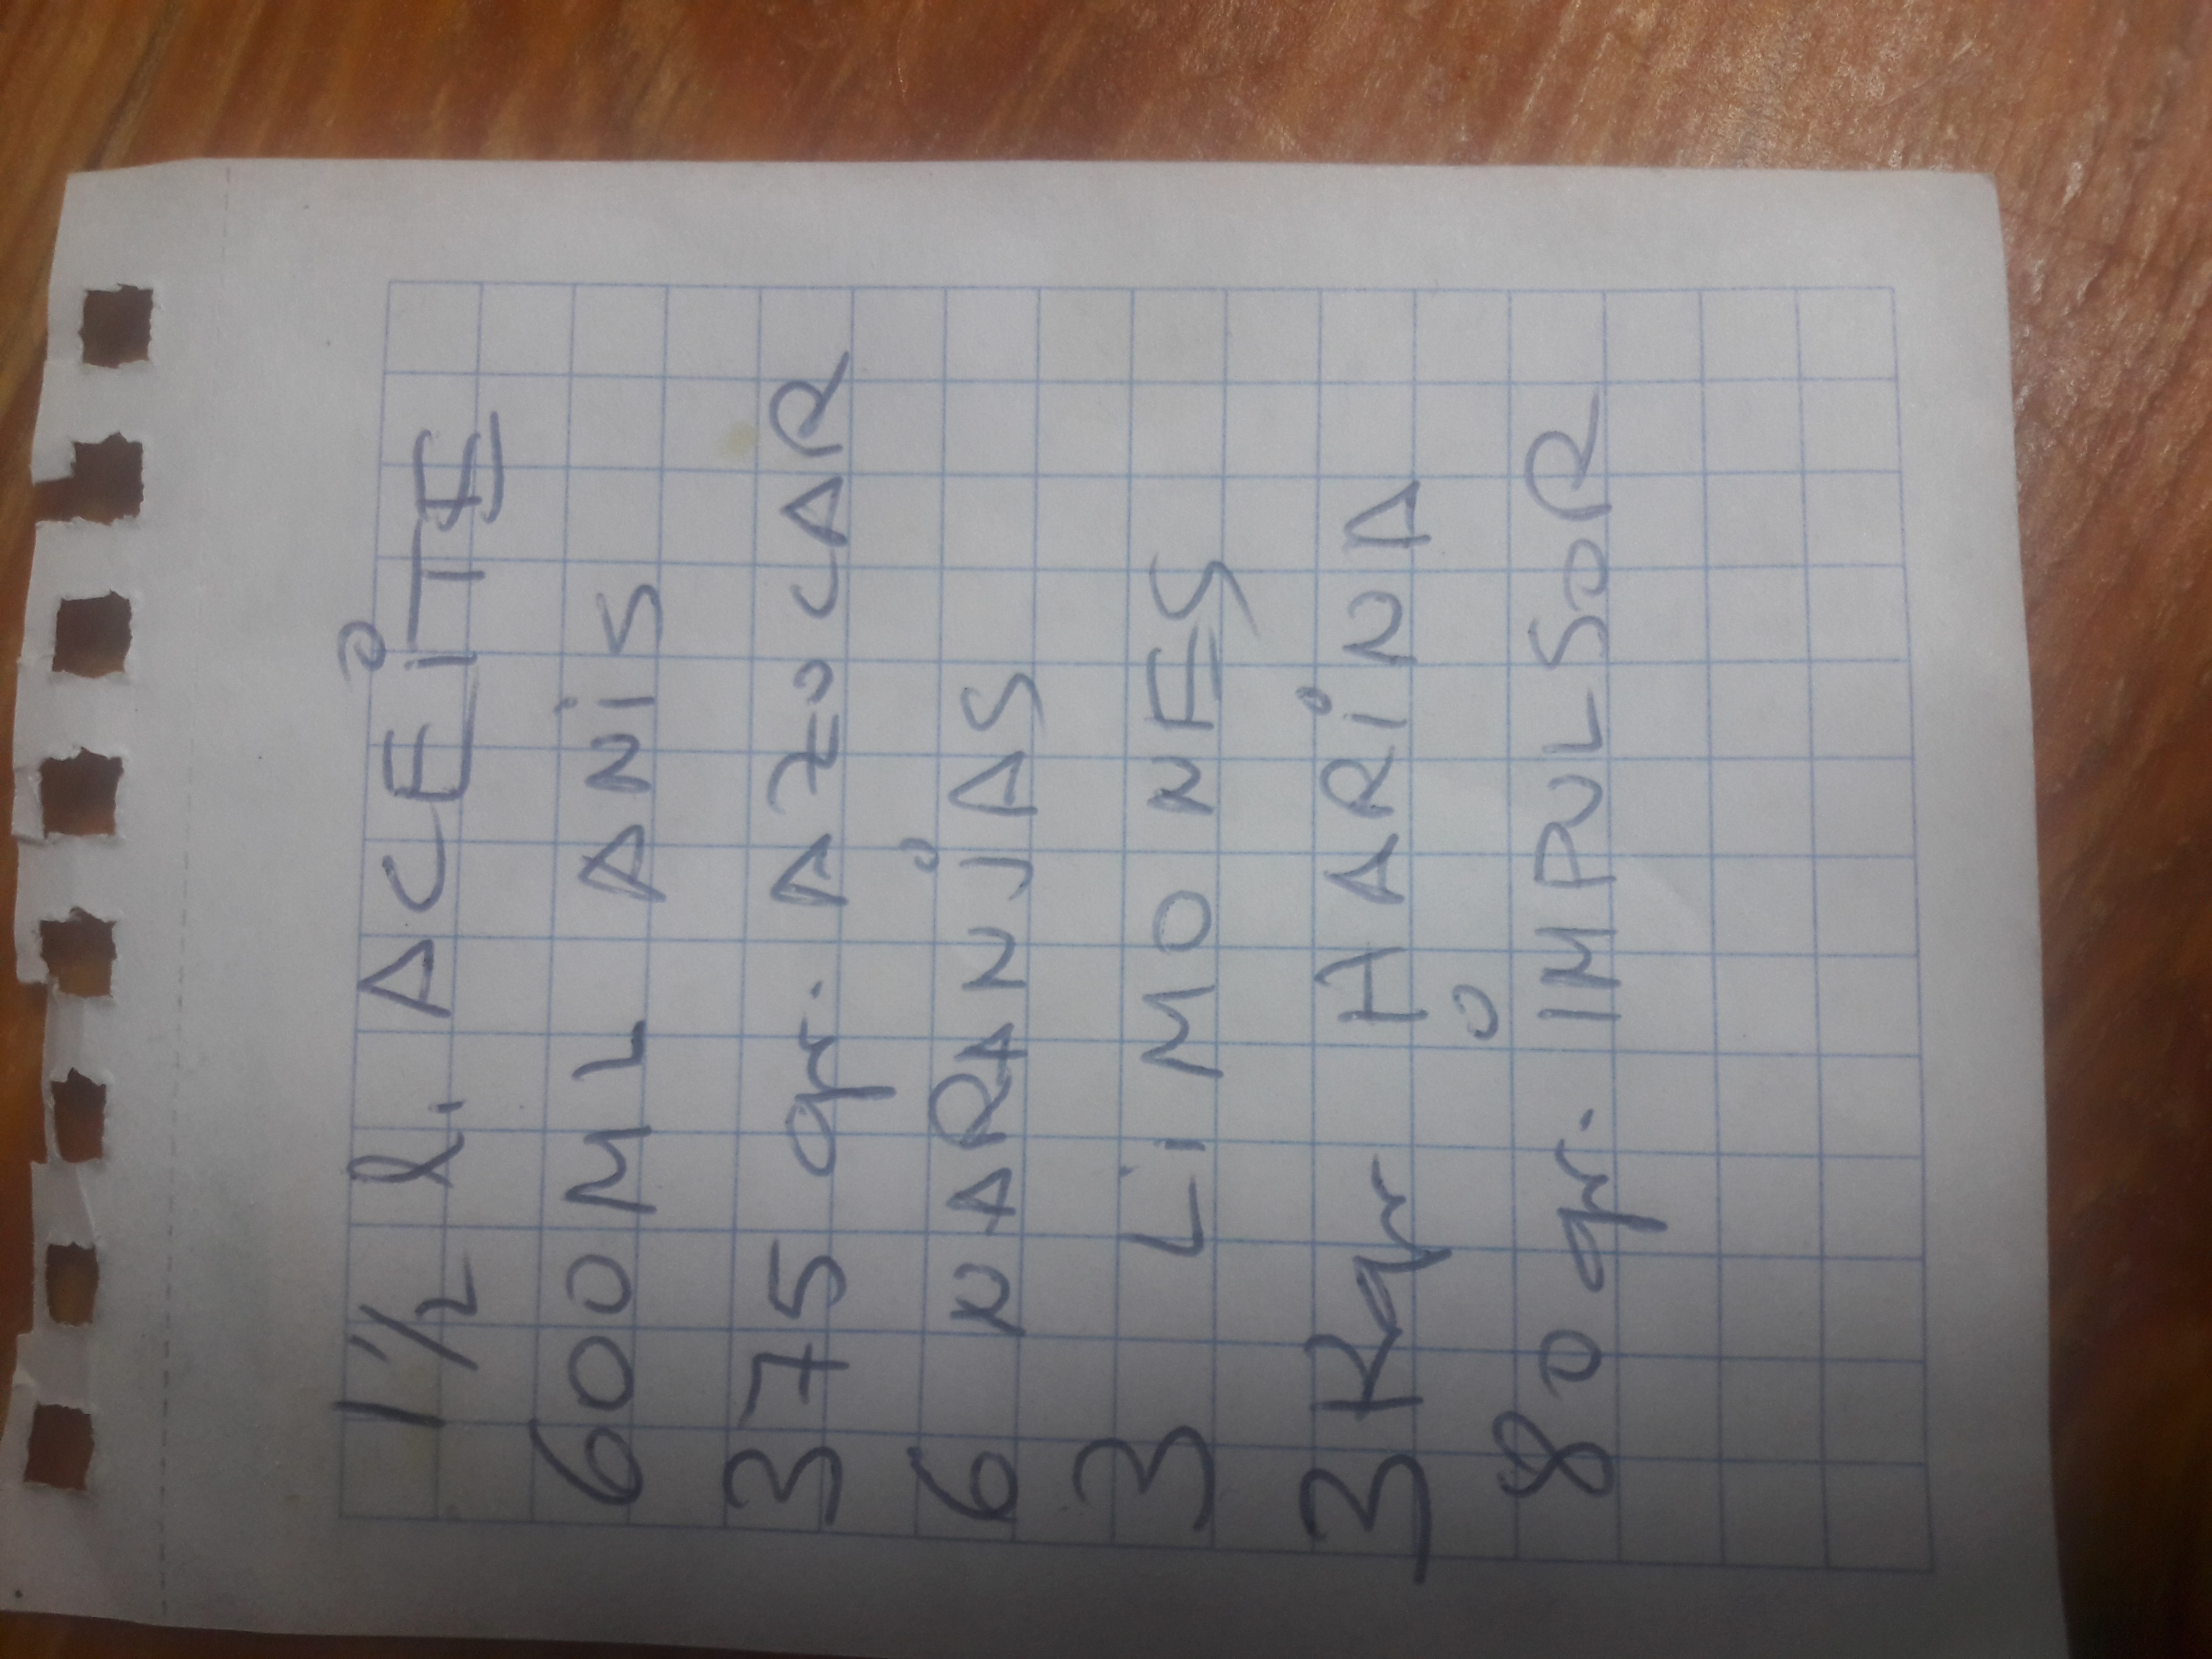 1 1/2 l. ACEITE
600 ML ANiS
375 gr. AZOCAR
6 NARANJAS
3 LiMONES
3 Kgr HARiNA
80 gr. IMPULSOR